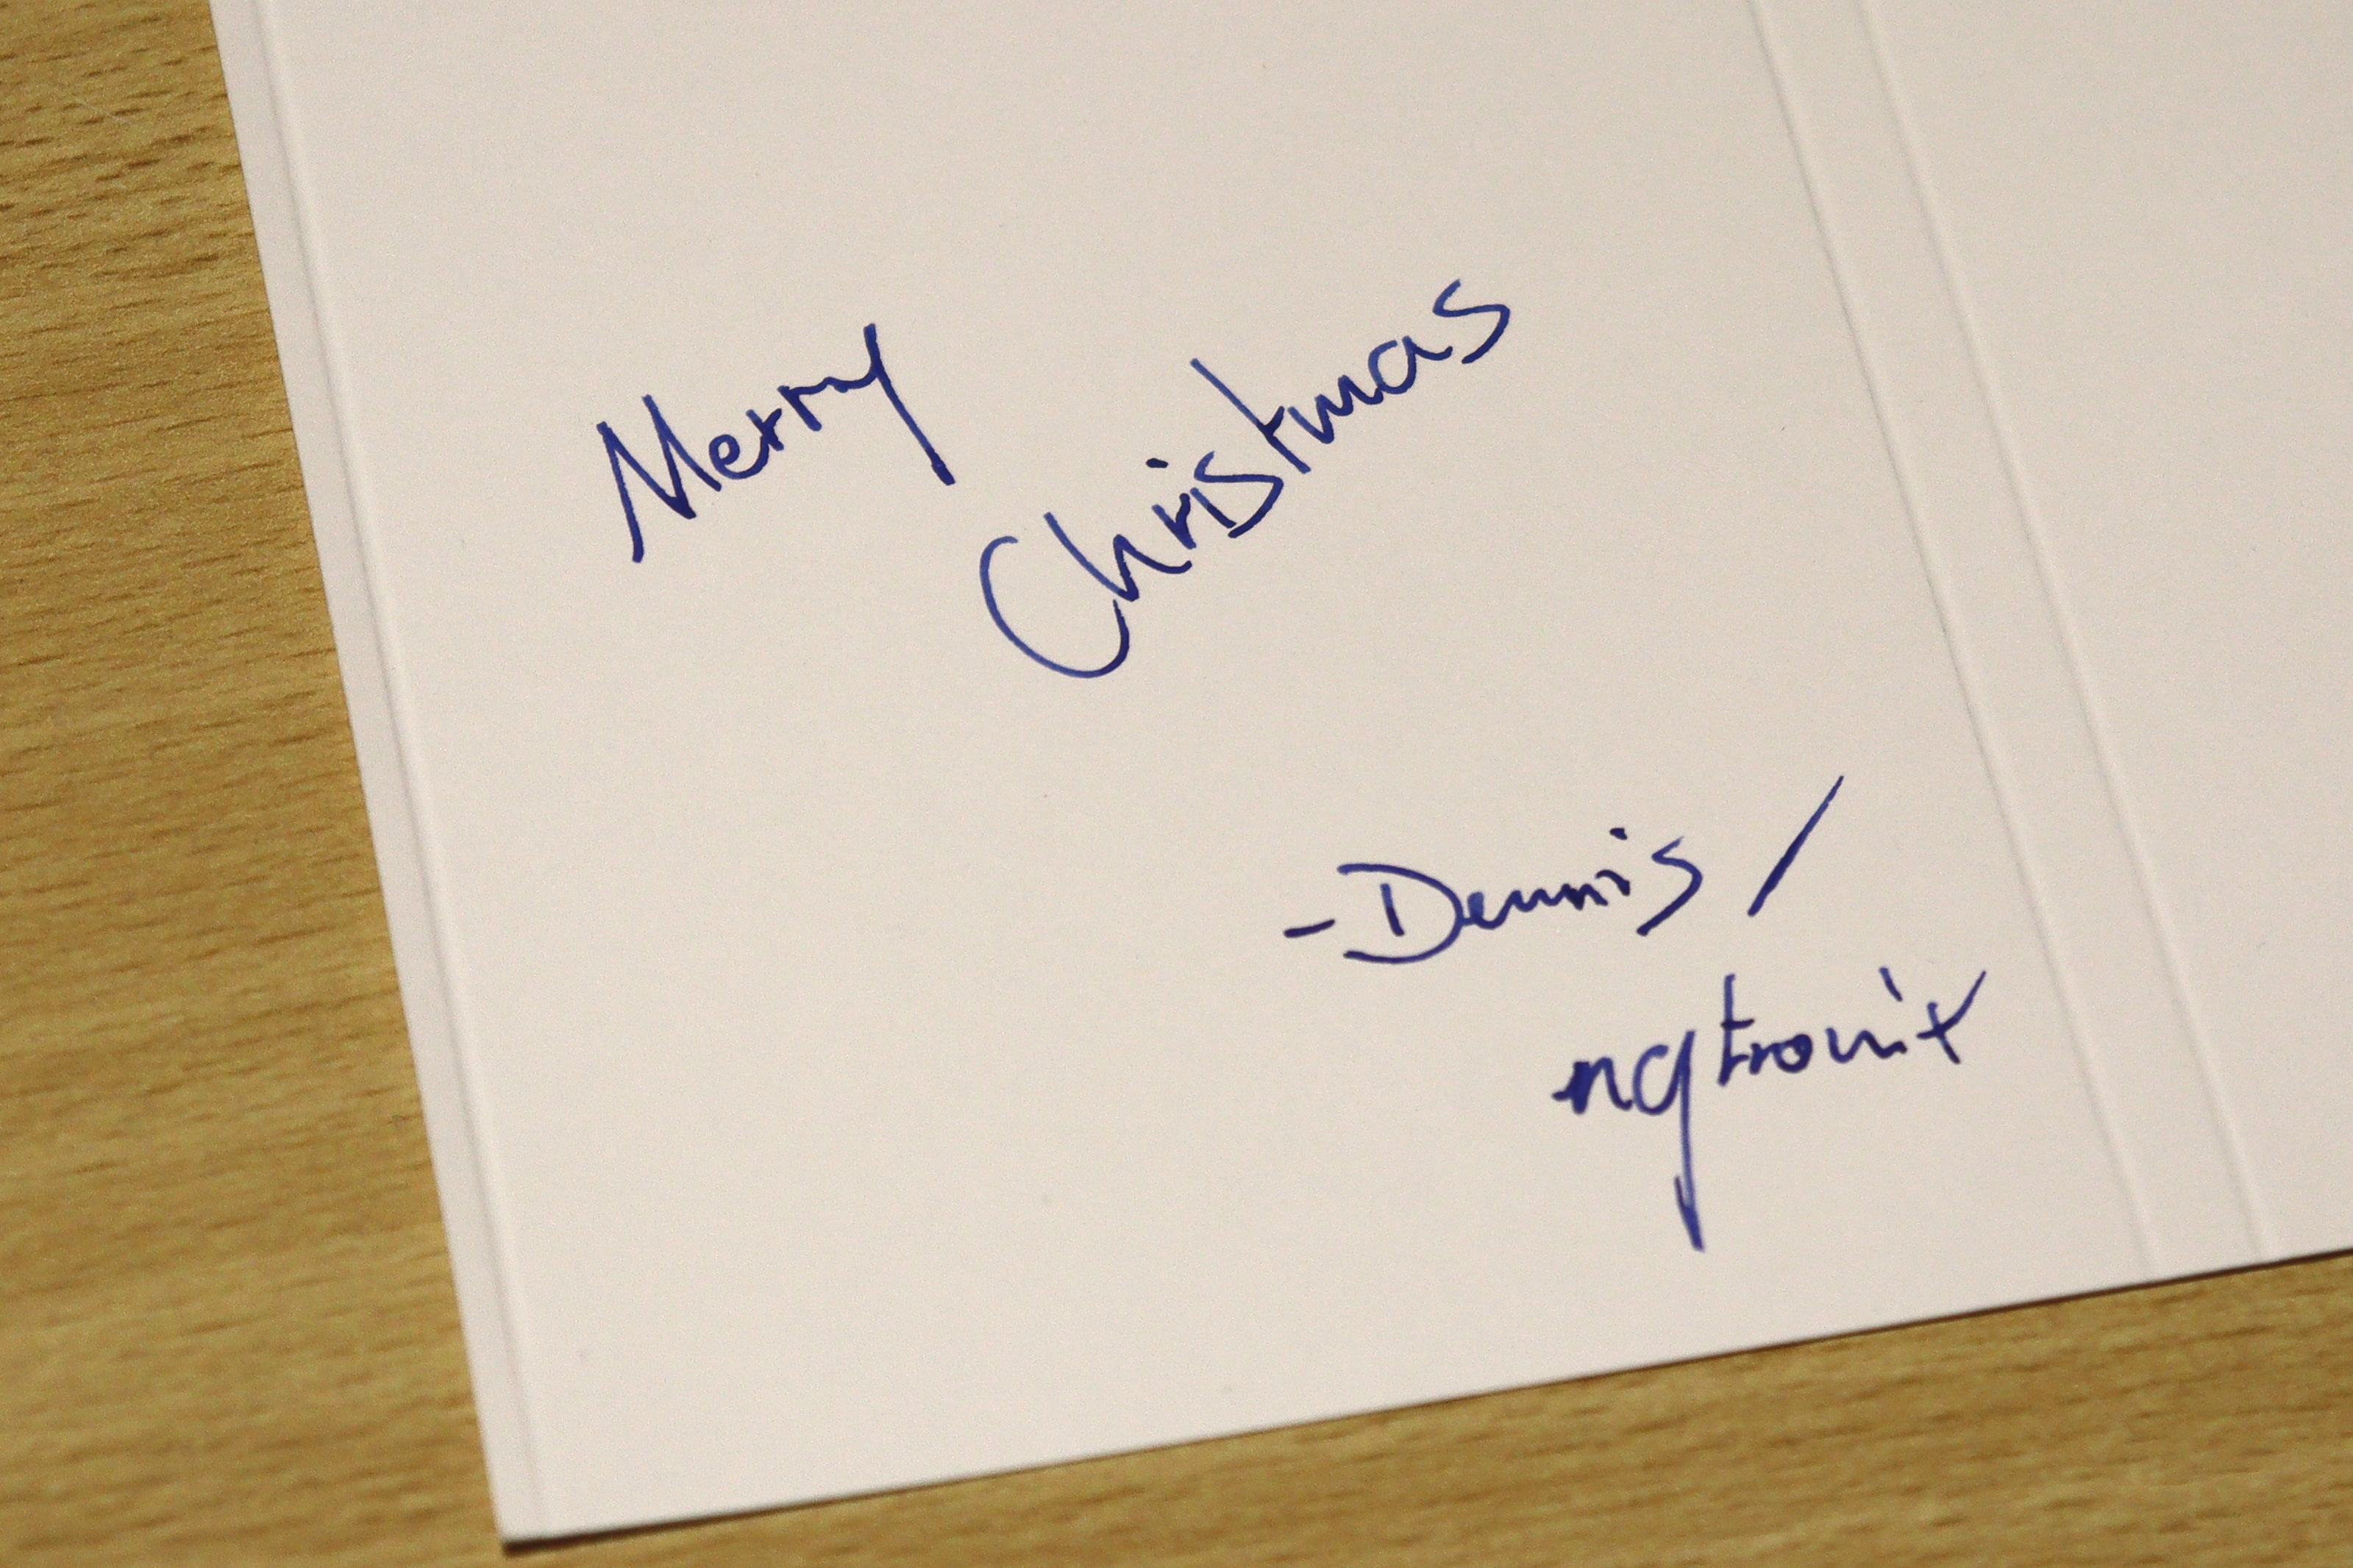 Merry
Christmas
- Dennis /
nqtronix